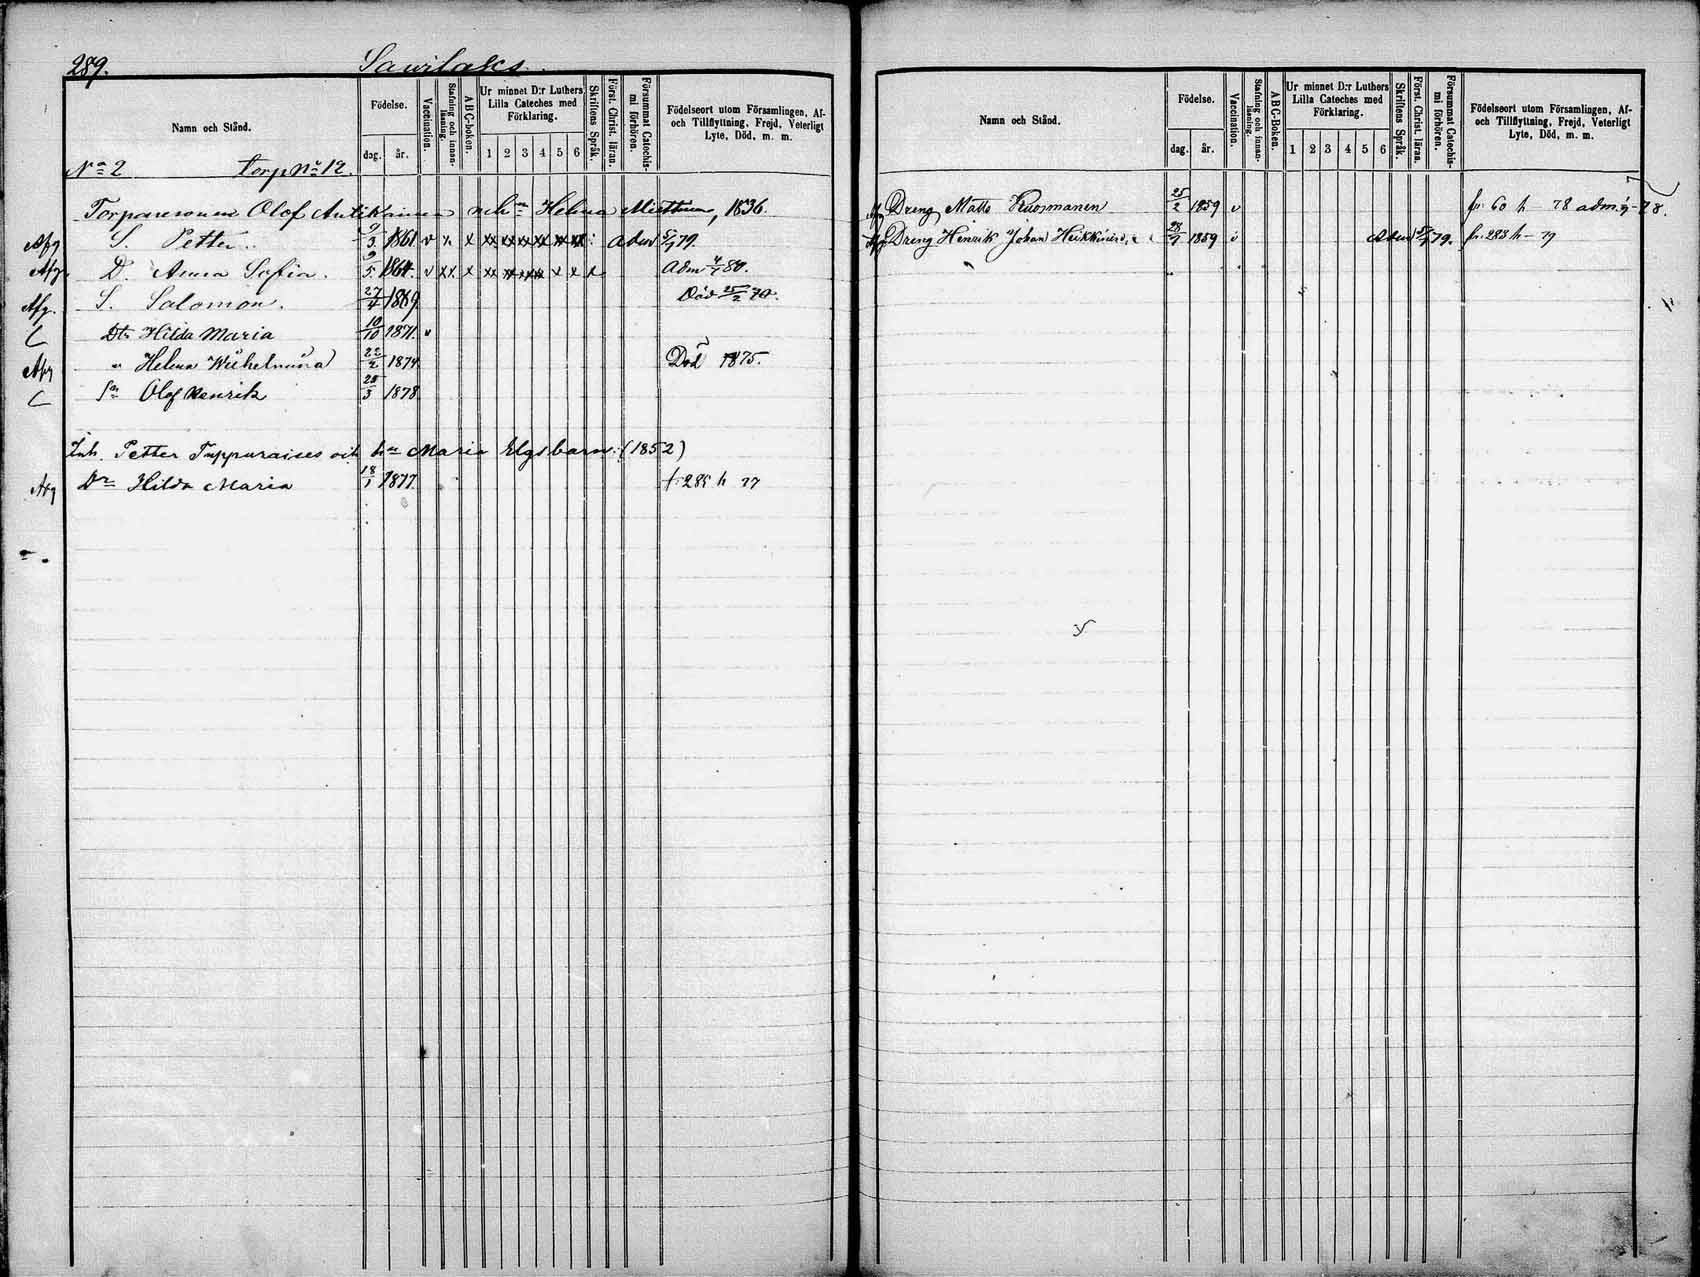 289. Sawilaks.
Namn och Stånd.
Födelse.
dag. år.
Vaccination.
Stafning och innanläsning.
ABC-boken.
Ur minnet D:r Luthers Lilla Cateches med Förklaring.
1 2 3 4 5 6
Skriftens Språk.
Först. Christ. läran.
Försummat Catechismi förhören.
Födelseort utom Församlingen, Af- och Tillflyttning, Frejd, Veterligt Lyte, Död, m. m.
No 2 Torp No 12.
Olof Antikainen Helena Miettinen, 1836.
Afg S. Petter. 9/3 1861 v x x xx xx xx xx xx xx 79.
Afg. D. Anna Sofia. 9/5 1864. v xx x xx xx xx x x x x Adm 4/7 80.
Afg. S. Salomon. 27/4 1869 Död 25/2 70.
Dtr Hilda Maria 10/10 1871. v
Afg " Helena Wilhelmina 22/2 1874. Död 1875.
Sn Olof Henrik 28/3 1878
Inh. Petter Tuppurainen och hu Maria Elgsbarn. (1852)
Afg Dr Hilda Maria 18/1 1877. f. 285 h 77
Namn och Stånd.
Födelse.
dag. år.
Vaccination.
Stafning och innanläsning.
ABC-Boken.
Ur minnet D:r Luthers Lilla Cateches med Förklaring.
1 2 3 4 5 6
Skriftens Språk.
Först. Christ. läran.
Försummat Catechismi förhören.
Födelseort utom Församlingen, Af- och Tillflyttning, Frejd, Veterligt Lyte, Död, m. m.
Afg Dreng Matts 25/2 1859 v fr. 60 h 78
Afg Dreng Henrik Johan Heikkinen 28/9 1859 v 79. fr. 283 h - 79